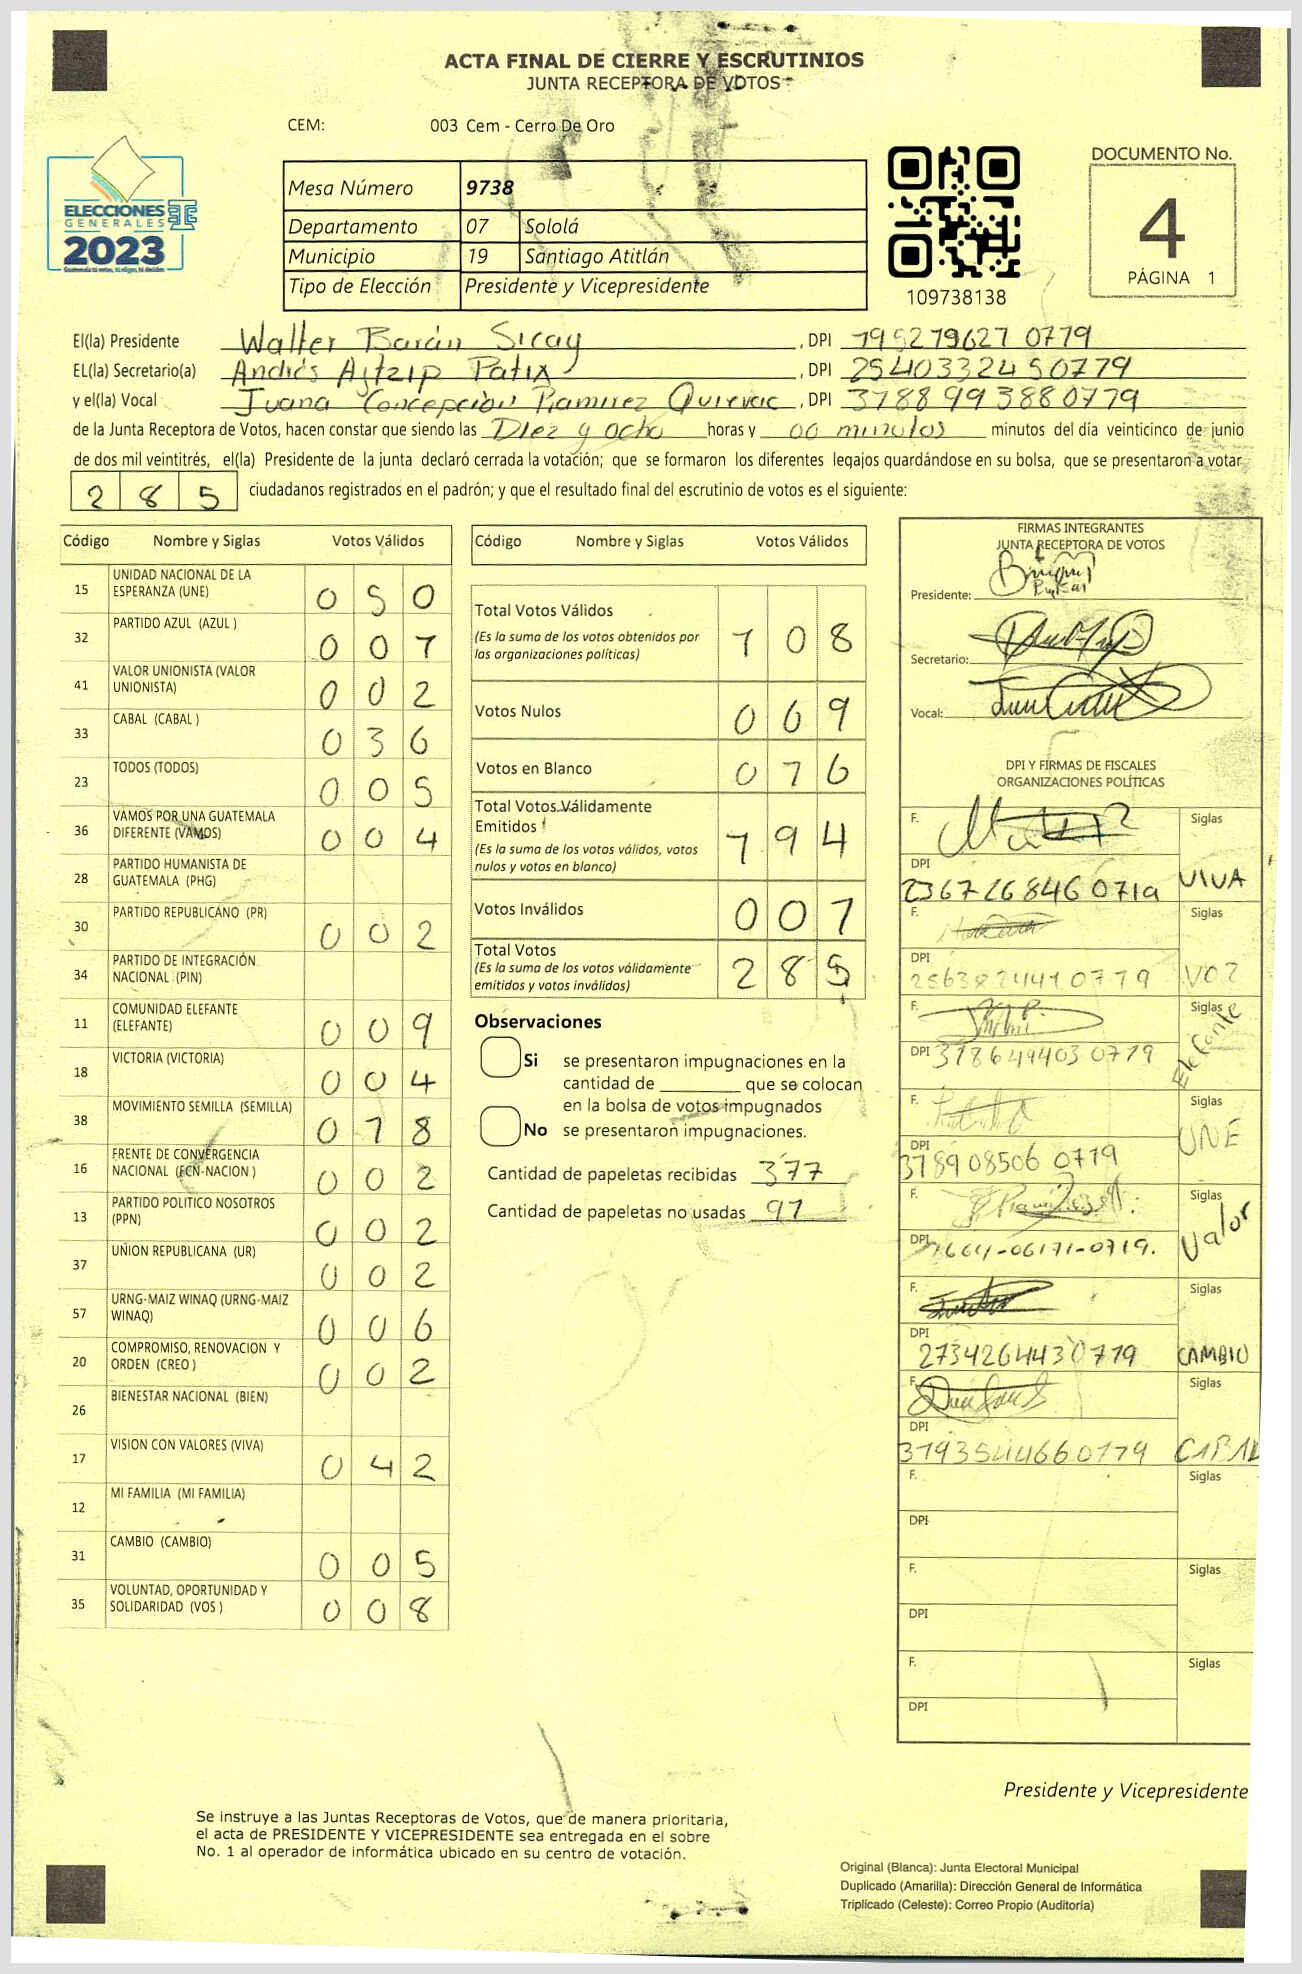 ACTA FINAL DE CIERRE Y ESCRUTINIOS
JUNTA RECEPTORA DE VOTOS
CEM: 003 Cem - Cerro De Oro
ELECCIONES
GENERALES
2023
Mesa Número 9738
Departamento 07 Sololá
Municipio 19 Santiago Atitlán
Tipo de Elección Presidente y Vicepresidente
109738138
DOCUMENTO No.
4
PÁGINA 1
El(la) Presidente Walter Barán Sicay, DPI 195279627 0779
EL(la) Secretario(a) Andrés Ajtzip Patix, DPI 2540332450779
y el(la) Vocal Juana Concepción Ramirez Quievac, DPI 3788993880779
de la Junta Receptora de Votos, hacen constar que siendo las Diez y ocho horas y 00 minutos minutos del día veinticinco de junio
de dos mil veintitrés, el(la) Presidente de la junta declaró cerrada la votación; que se formaron los diferentes legajos guardándose en su bolsa, que se presentaron a votar
285 ciudadanos registrados en el padrón; y que el resultado final del escrutinio de votos es el siguiente:
Código Nombre y Siglas Votos Válidos
15 UNIDAD NACIONAL DE LA ESPERANZA (UNE) 0 5 0
32 PARTIDO AZUL (AZUL ) 0 0 7
41 VALOR UNIONISTA (VALOR UNIONISTA) 0 0 2
33 CABAL (CABAL ) 0 3 6
23 TODOS (TODOS) 0 0 5
36 VAMOS POR UNA GUATEMALA DIFERENTE (VAMOS) 0 0 4
28 PARTIDO HUMANISTA DE GUATEMALA (PHG)
30 PARTIDO REPUBLICANO (PR) 0 0 2
34 PARTIDO DE INTEGRACIÓN NACIONAL (PIN)
11 COMUNIDAD ELEFANTE (ELEFANTE) 0 0 9
18 VICTORIA (VICTORIA) 0 0 4
38 MOVIMIENTO SEMILLA (SEMILLA) 0 1 8
16 FRENTE DE CONVERGENCIA NACIONAL (FCN-NACION ) 0 0 2
13 PARTIDO POLITICO NOSOTROS (PPN) 0 0 2
37 UNION REPUBLICANA (UR) 0 0 2
57 URNG-MAIZ WINAQ (URNG-MAIZ WINAQ) 0 0 6
20 COMPROMISO, RENOVACION Y ORDEN (CREO ) 0 0 2
26 BIENESTAR NACIONAL (BIEN)
17 VISION CON VALORES (VIVA) 0 4 2
12 MI FAMILIA (MI FAMILIA)
31 CAMBIO (CAMBIO) 0 0 5
35 VOLUNTAD, OPORTUNIDAD Y SOLIDARIDAD (VOS ) 0 0 8
Código Nombre y Siglas Votos Válidos
Total Votos Válidos
(Es la suma de los votos obtenidos por las organizaciones políticas) 1 0 8
Votos Nulos 0 69
Votos en Blanco 0 1 6
Total Votos Válidamente Emitidos
(Es la suma de los votos válidos, votos nulos y votos en blanco) 1 9 4
Votos Inválidos 0 0 7
Total Votos
(Es la suma de los votos válidamente emitidos y votos inválidos) 2 8 5
Observaciones
Si se presentaron impugnaciones en la
cantidad de ________ que se colocan
en la bolsa de votos impugnados
No se presentaron impugnaciones.
Cantidad de papeletas recibidas 377
Cantidad de papeletas no usadas 97
FIRMAS INTEGRANTES
JUNTA RECEPTORA DE VOTOS
Presidente:
Secretario:
Vocal:
DPI Y FIRMAS DE FISCALES
ORGANIZACIONES POLÍTICAS
F. Siglas
DPI 236726846 0719 VIVA
F. Siglas
DPI VOZ
F. Siglas
DPI 378649403 0779 Elefante
F. Siglas
DPI 378908506 0779 UNE
F. Siglas
DPI 1664-06171-0719. Valor
F. Siglas
DPI 2734264430779 CAMBIO
F. Siglas
DPI 3793544660779 CABAL
F. Siglas
DPI
F. Siglas
DPI
F. Siglas
DPI
Presidente y Vicepresidente
Se instruye a las Juntas Receptoras de Votos, que de manera prioritaria,
el acta de PRESIDENTE Y VICEPRESIDENTE sea entregada en el sobre
No. 1 al operador de informática ubicado en su centro de votación.
Original (Blanca): Junta Electoral Municipal
Duplicado (Amarilla): Dirección General de Informática
Triplicado (Celeste): Correo Propio (Auditoría)